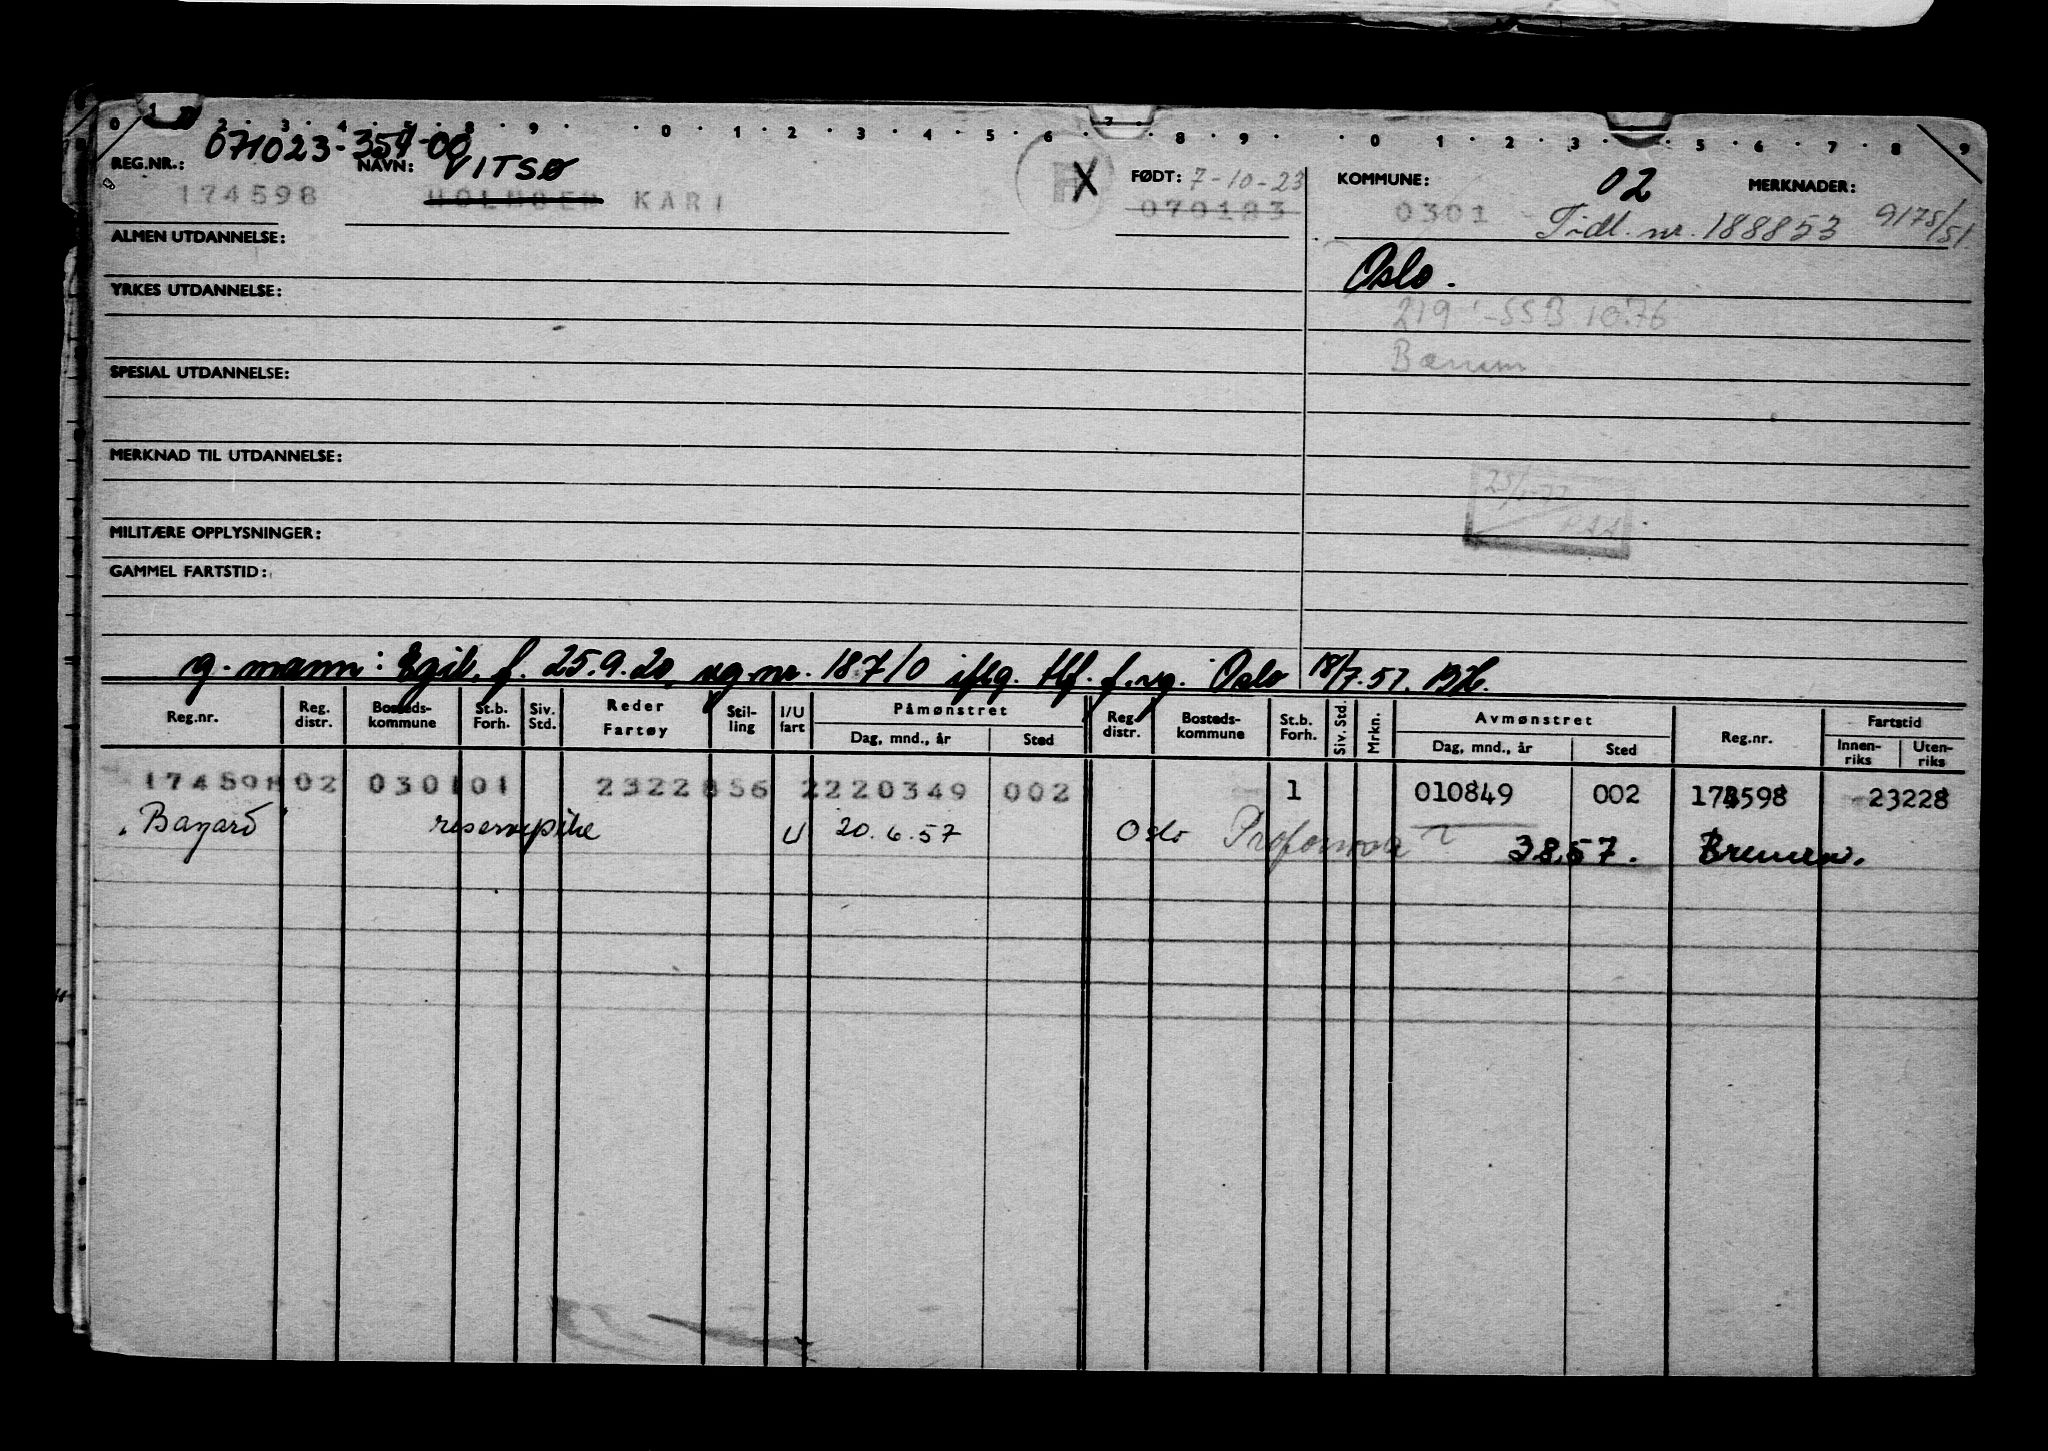 0 1 2 3 4 5 8 9 0 1 2 3 4 5 6 7 8 9 0 1 2 3 5 6 7 8 9
071023-359-00
REG.NR.: NAVN: VITSØ FØDT: 7-10-23 KOMMUNE: 02 MERKNADER:
174598 HOLMSEN KARI X 070183 0301 Tidl. nr. 188853 9175/51
ALMEN UTDANNELSE:
Oslo.
YRKES UTDANNELSE:
219 -SSB 10.76
Bærum
SPESIAL UTDANNELSE:
MERKNAD TIL UTDANNELSE:
MILITÆRE OPPLYSNINGER:
GAMMEL FARTSTID:
g. mann: Egil. f. 25.9.20, rg.nr. 18710 iflg. tlf. f. rg. Oslo 18/7.57.
Reg.nr. Reg. distr. Bosteds-kommune St.b. Forh. Siv. Std. Reder Fartøy Stil-ling I/U fart Påmønstret Dag, mnd., år Sted Reg. distr. Bosteds-kommune St.b. Forh. Siv. Std. Mrkn. Avmønstret Dag, mnd., år Sted Reg.nr. Fartstid Innen-riks Uten-riks
174598 02 0301 01 2322 856 2 220349 002 1 010849 002 174598 23228
"Bayard" reservepike U 20.6.57 Oslo Proforma 3.8.57. Bremen.